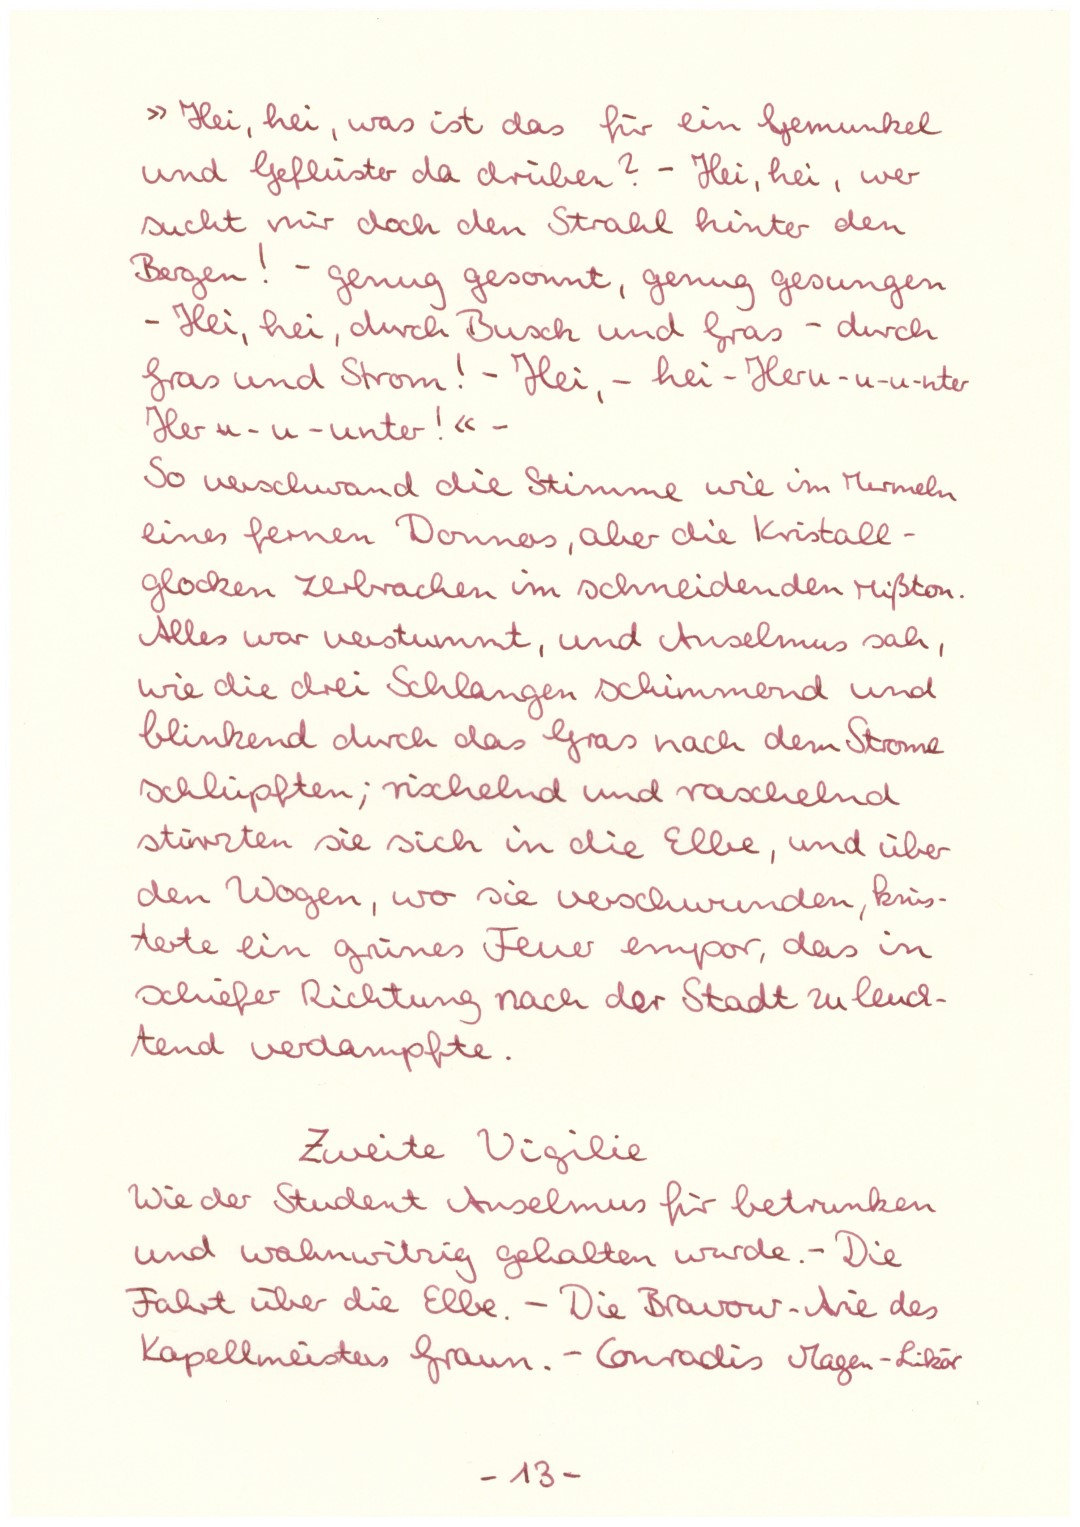 » Hei, hei, was ist das für ein Gemunkel
und Geflüster da drüben? - Hei, hei, wer
sucht mir doch den Strahl hinter den
Bergen! - genug gesonnt, genug gesungen
- Hei, hei, durch Busch und Gras - durch
Gras und Strom! - Hei, - hei - Heru-u-u-nter
Her u-u-unter! « -
So verschwand die Stimme wie im Murmeln
eines fernen Donners, aber die Kristall-
glocken zerbrachen im schneidenden Mißton.
Alles war verstummt, und Anselmus sah,
wie die drei Schlangen schimmernd und
blinkend durch das Gras nach dem Strome
schlüpften; rischelnd und raschelnd
stürzten sie sich in die Elbe, und über
den Wogen, wo sie verschwunden, knis-
terte ein grünes Feuer empor, das in
schiefer Richtung nach der Stadt zu leuch-
tend verdampfte.
Zweite Vigilie
Wie der Student Anselmus für betrunken
und wahnwitzig gehalten wurde. - Die
Fahrt über die Elbe. - Die Bravour-Arie des
Kapellmeisters Graun. - Conradis Magen-Likör
- 13 -